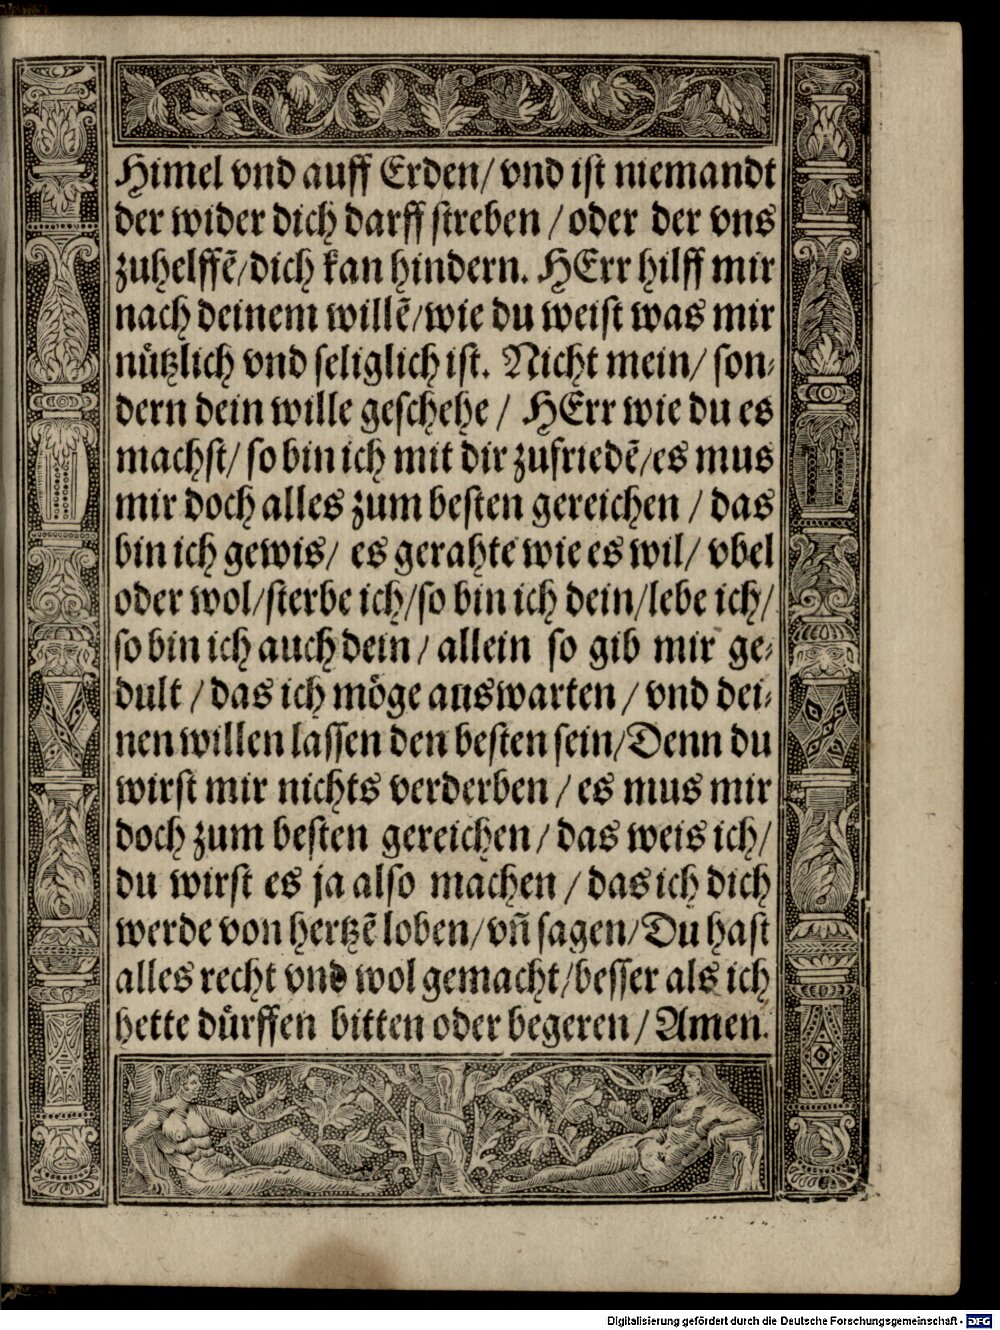 Himel vnd auff Erden/ vnd ist niemandt
der wider dich darff streben / oder der vns
zuhelffẽ/dich kan hindern. HErr hilff mir
nach deinem willẽ/wie du weist was mir
nuͤtzlich vnd seliglich ist. Nicht mein/ son⸗
dern dein wille geschehe / HErr wie du es
machst/ so bin ich mit dir zufriedẽ/es mus
mir doch alles zum besten gereichen / das
bin ich gewis/ es gerahte wie es wil/ vbel
oder wol/sterbe ich/so bin ich dein/lebe ich/
so bin ich auch dein / allein so gib mir ge⸗
dult / das ich moͤge auswarten / vnd dei⸗
nen willen lassen den besten sein/Denn du
wirst mir nichts verderben / es mus mir
doch zum besten gereichen / das weis ich/
du wirst es ja also machen / das ich dich
werde von hertzẽ loben/vñ sagen/Du hast
alles recht vnd wol gemacht/besser als ich
hette duͤrffen bitten oder begeren / Amen.
Digitalisierung gefördert durch die Deutsche Forschungsgemeinschaft - DFG